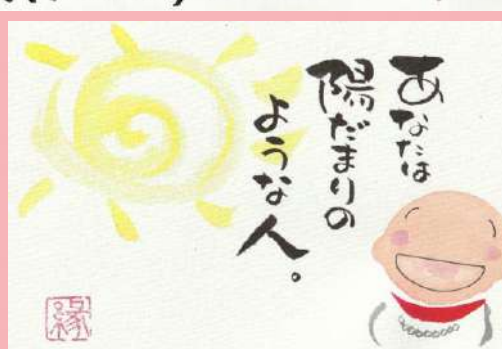 あなたは
陽だまりの
ような人。
縁